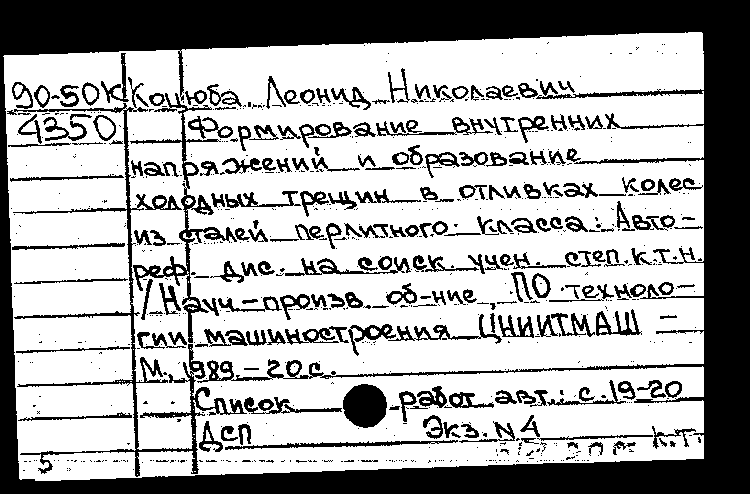 90-50К Коцюба Леонид Николаевич
4350 Формирование внутренних
напряжений и образование
холодных трещин в отливках колес
из сталей перлитного класса: Авто-
реф. дис. на соиск. учен. степ. к.т.н.
/Науч.-произв. об-ние ПО техноло-
гии машиностроения ЦНИИТМАШ –
М., 1989. – 20 с.
Список работ авт.: с. 19-20
ДСП Экз. N 4
5 к.т.